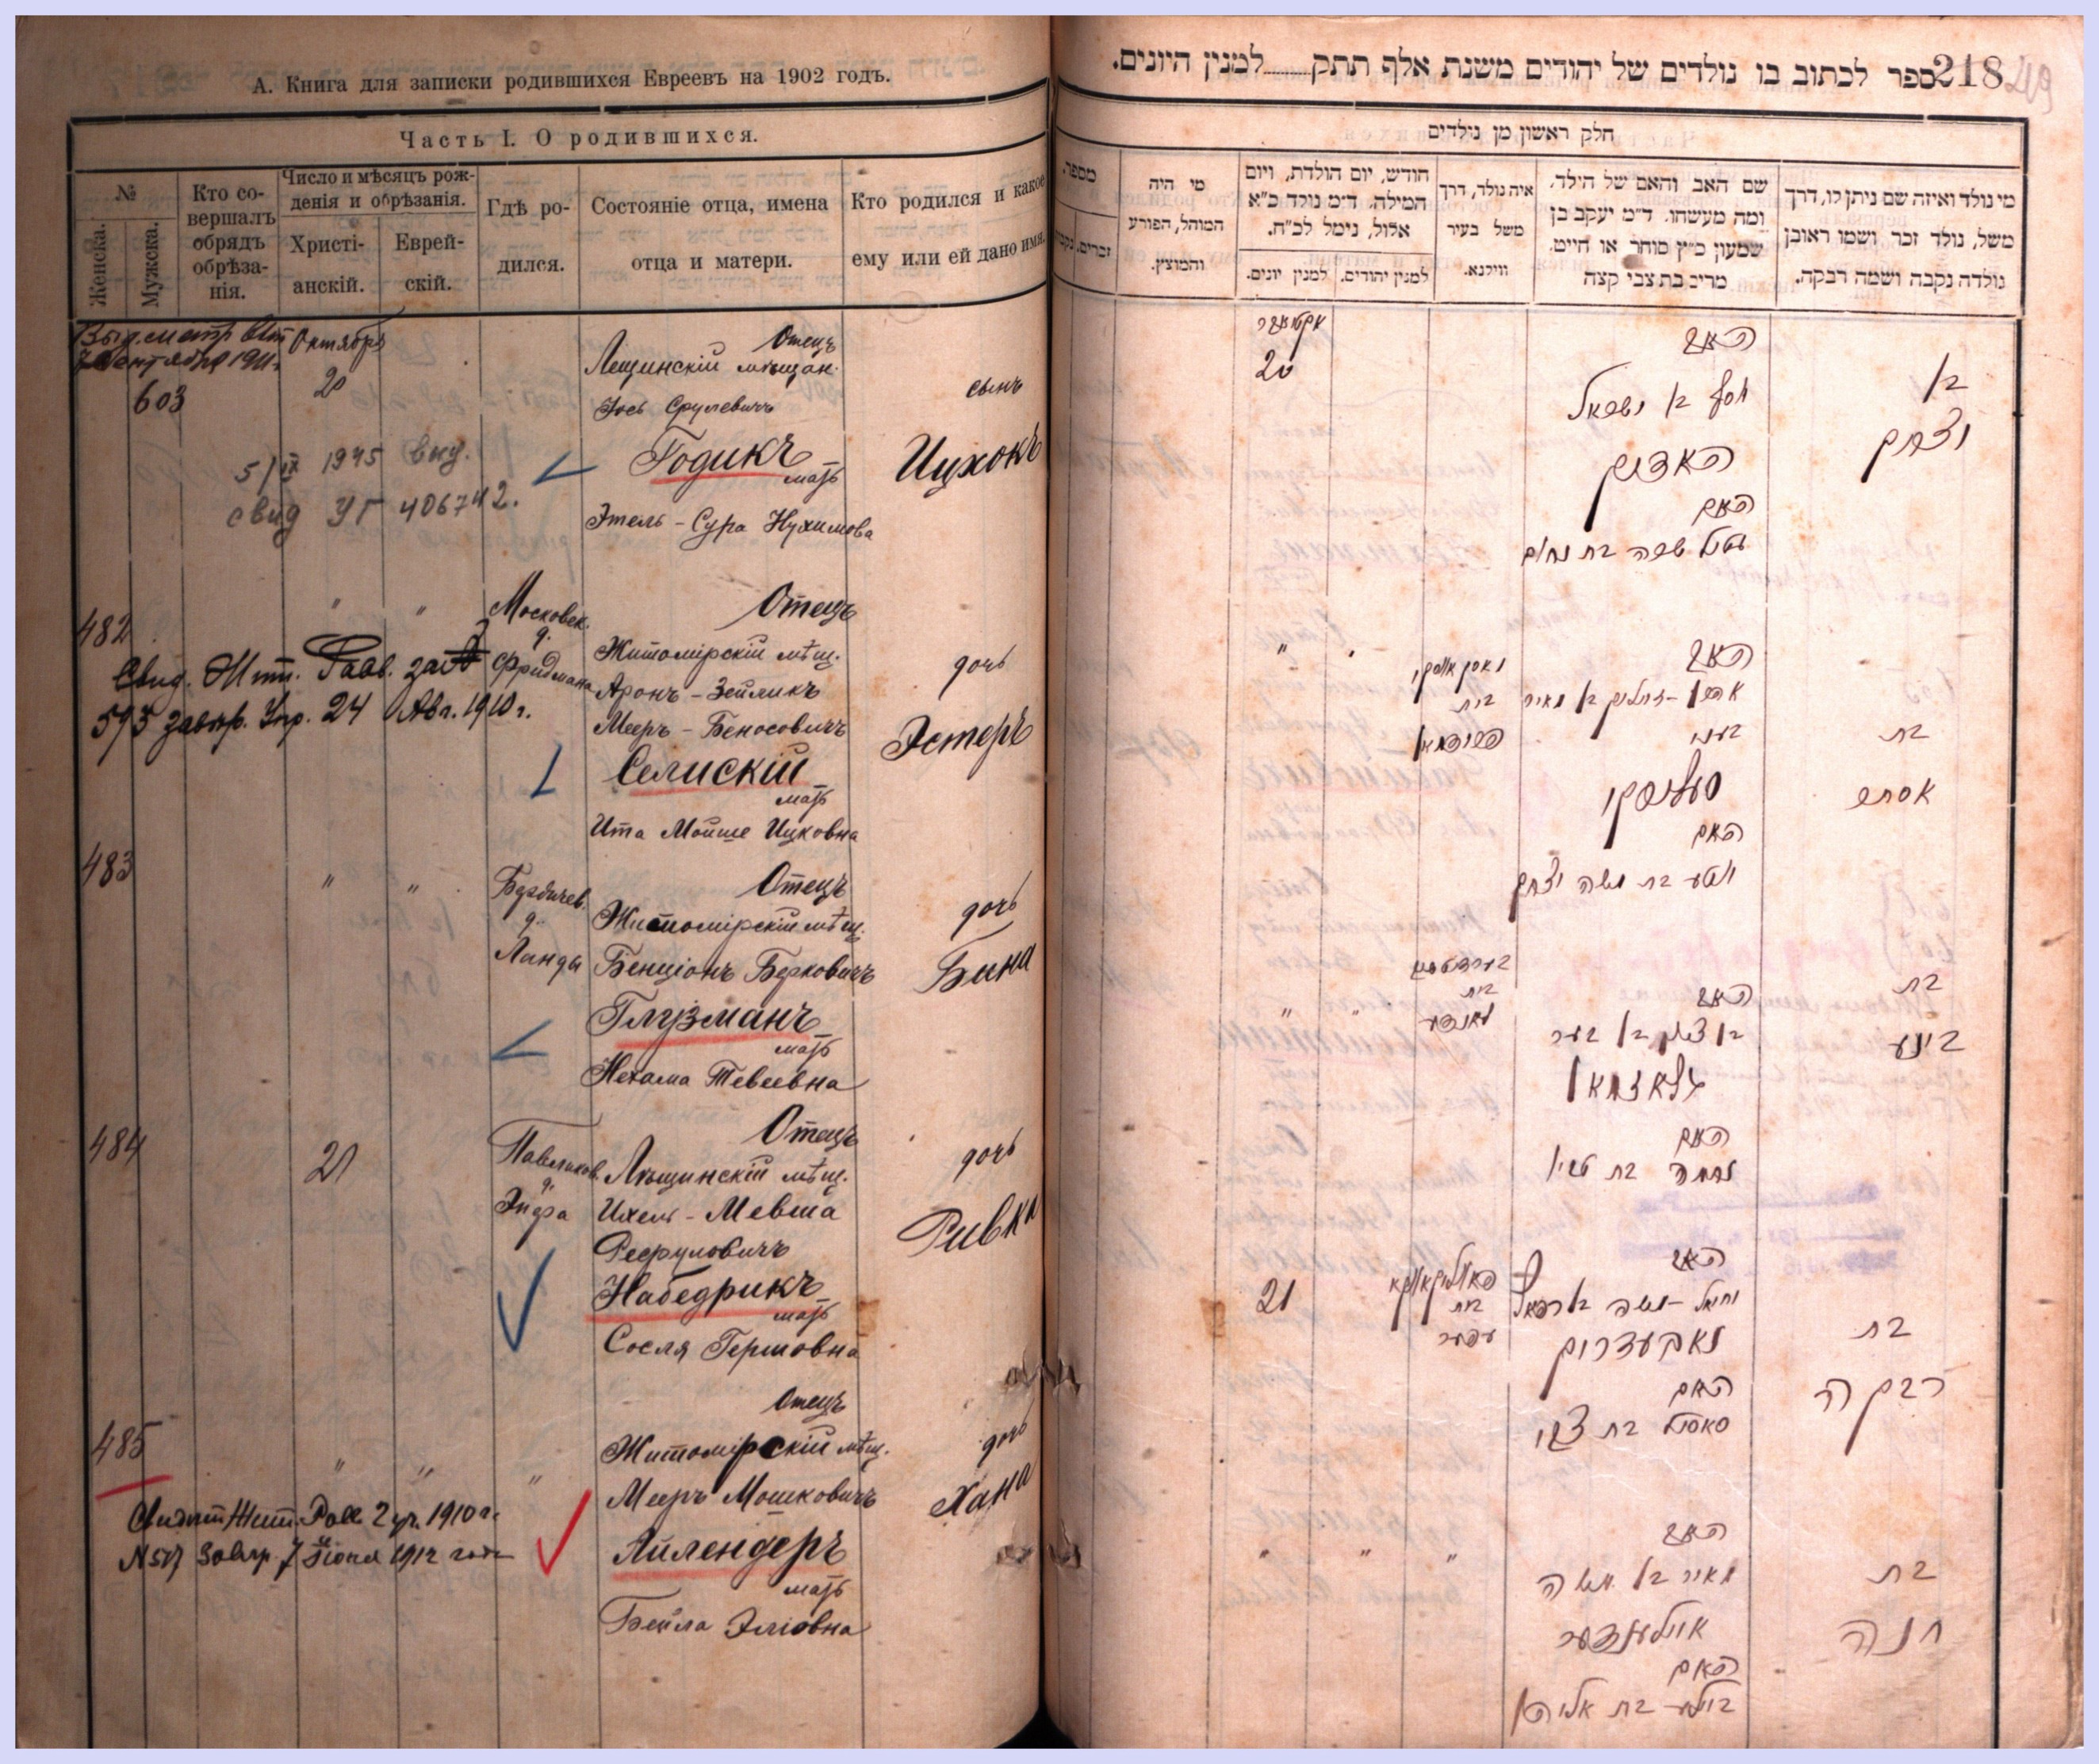 А. Книга для записки родившихся Евреевъ на 1902 годъ.
Часть I. О родившихся.
№
Женска.
Мужска.
Кто со-
вершалъ
обрядъ
обрѣза-
нія.
Число и мѣсяцъ рож-
денія и обрѣзанія.
Христі-
анскій.
Еврей-
скій.
Гдѣ ро-
дился.
Состояніе отца, имена
отца и матери.
Кто родился и какое
ему или ей дано имя.
Октября
603
20
Отецъ
Лещинскій мѣщан.
Іось Срулевичъ
Годикъ
мать
Этель-Сура Нухимова
сынъ
Ицхокъ
5/IX 1975 вид.
свид УГ 406742.
482
" "
Московск.
д.
Фридмана
Отецъ
Житомірскій мѣщ.
Аронъ-Зейликъ
Мееръ-Беносовичъ
Селискій
мать
Ита Мойше Ицковна
дочь
Эстеръ
595 завѣр. Упр. 24 Авг. 1910 г.
483
" "
Бердичев.
д.
Ланды
Отецъ
Житомірскій мѣщ.
Бенціонъ Берковичъ
Глузманъ
мать
Нехама Тевеевна
дочь
Бина
484
21
д.
Отецъ
Лѣщинскій мѣщ.
Ихель-Мевша
Рефуловичъ
Набедрикъ
мать
Сосля Гершовна
дочь
Ривка
485
" " "
Отецъ
Житомірскій мѣщ.
Мееръ Мошковичъ
Айлендеръ
мать
Бейла Эліовна
дочь
Хана
2 уч. 1910 г.
7 Іюня 1912 года
218
ספר לכתוב בו נולדים של יהודים משנת אלף תתק........למנין היונים.
חלק ראשון מן נולדים
מי נולד ואיזה שם ניתן לו, דרך
משל, נולד זכר ושמו ראובן
נולדה נקבה ושמה רבקה.
שם האב והאם של הילד,
ומה מעשהו. ד״מ יעקב בן
שמעון כ״ץ סוחר או חייט.
מריב בת צבי קצה
איה נולד, דרך
משל בעיר
ווילנא.
חודש, יום הולדת, ויום
המילה. ד״מ נולד כ״א
אלול, נימל לכ״ח.
למנין יהודים.
למנין יונים.
מי היה
המוהל, הפורע
והמוצץ.
מספר.
זכרים.
נקבות
אקטאבר
20
האב
יוסף בן ישראל
האדיק
האם
עטיל שרה בת נחום
בן
יצחק
" "
בית
פרידמאן
האב
אהרן-זעליק בן מאיר
סעליסקי
האם
יטע בת משה יצחק
בת
אסתר
" "
בית
לאנדע
האב
בן ציון בן בער
גלאזמאן
האם
נחמה בת טביי
בת
בינע
21
בית
האב
יחיאל-משה בן רפאל
נאבעדריק
האם
סאסיל בת צבי
בת
רבקה
" " "
האב
מאיר בן משה
איילענדער
האם
ביילע בת אליהו
בת
חנה